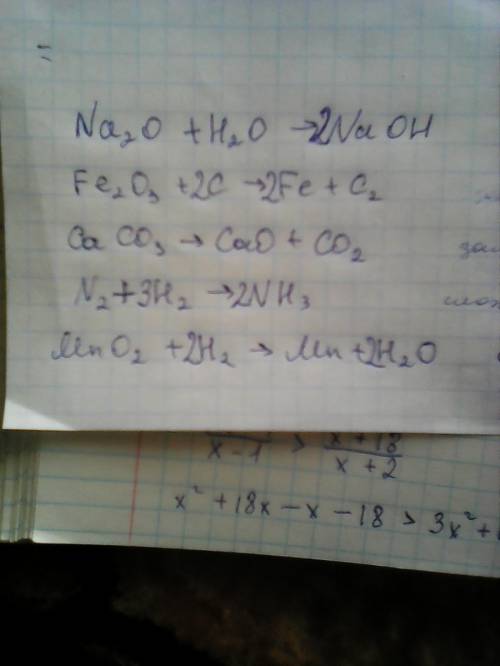 Na₂O + H₂O → 2NaOH
Fe₂O₃ + 2C → 2Fe + C₂
CaCO₃ → CaO + CO₂
N₂ + 3H₂ → 2NH₃
MnO₂ + 2H₂ → Mn + 2H₂O
x - 1 > x + 18 / x + 2
x² + 18x - x - 18 > 3x² +